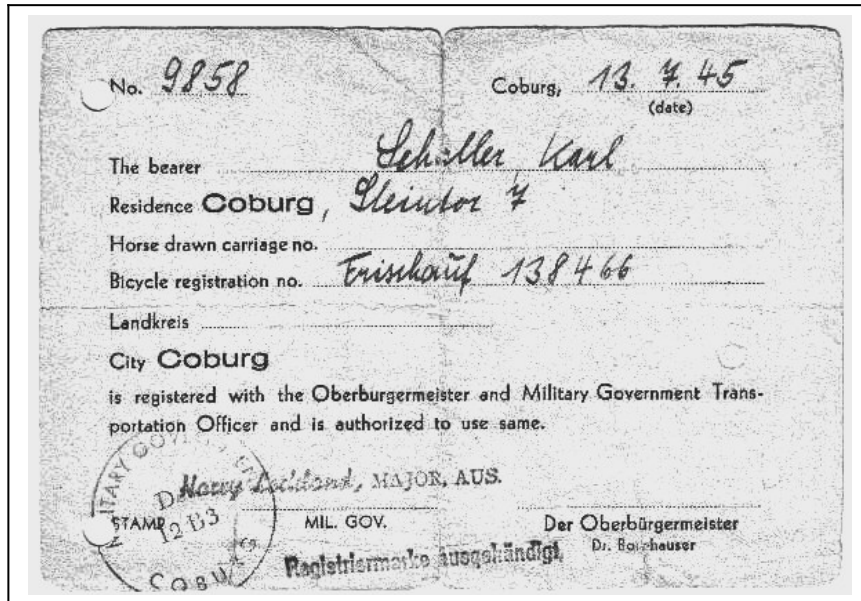 No. 9858 Coburg, 13. 7. 45
(date)
The bearer Karl
Residence Coburg, Steintor 7
Horse drawn carriage no.
Bicycle registration no. Frischauf 138466
Landkreis
City Coburg
is registered with the Oberburgermeister and Military Government Trans-
portation Officer and is authorized to use same.
MILITARY GOVERNMENT
Harry MAJOR, AUS.
STAMP MIL. GOV. Der Oberbürgermeister
Dr.
COBURG
Registriermarke ausgehändigt.